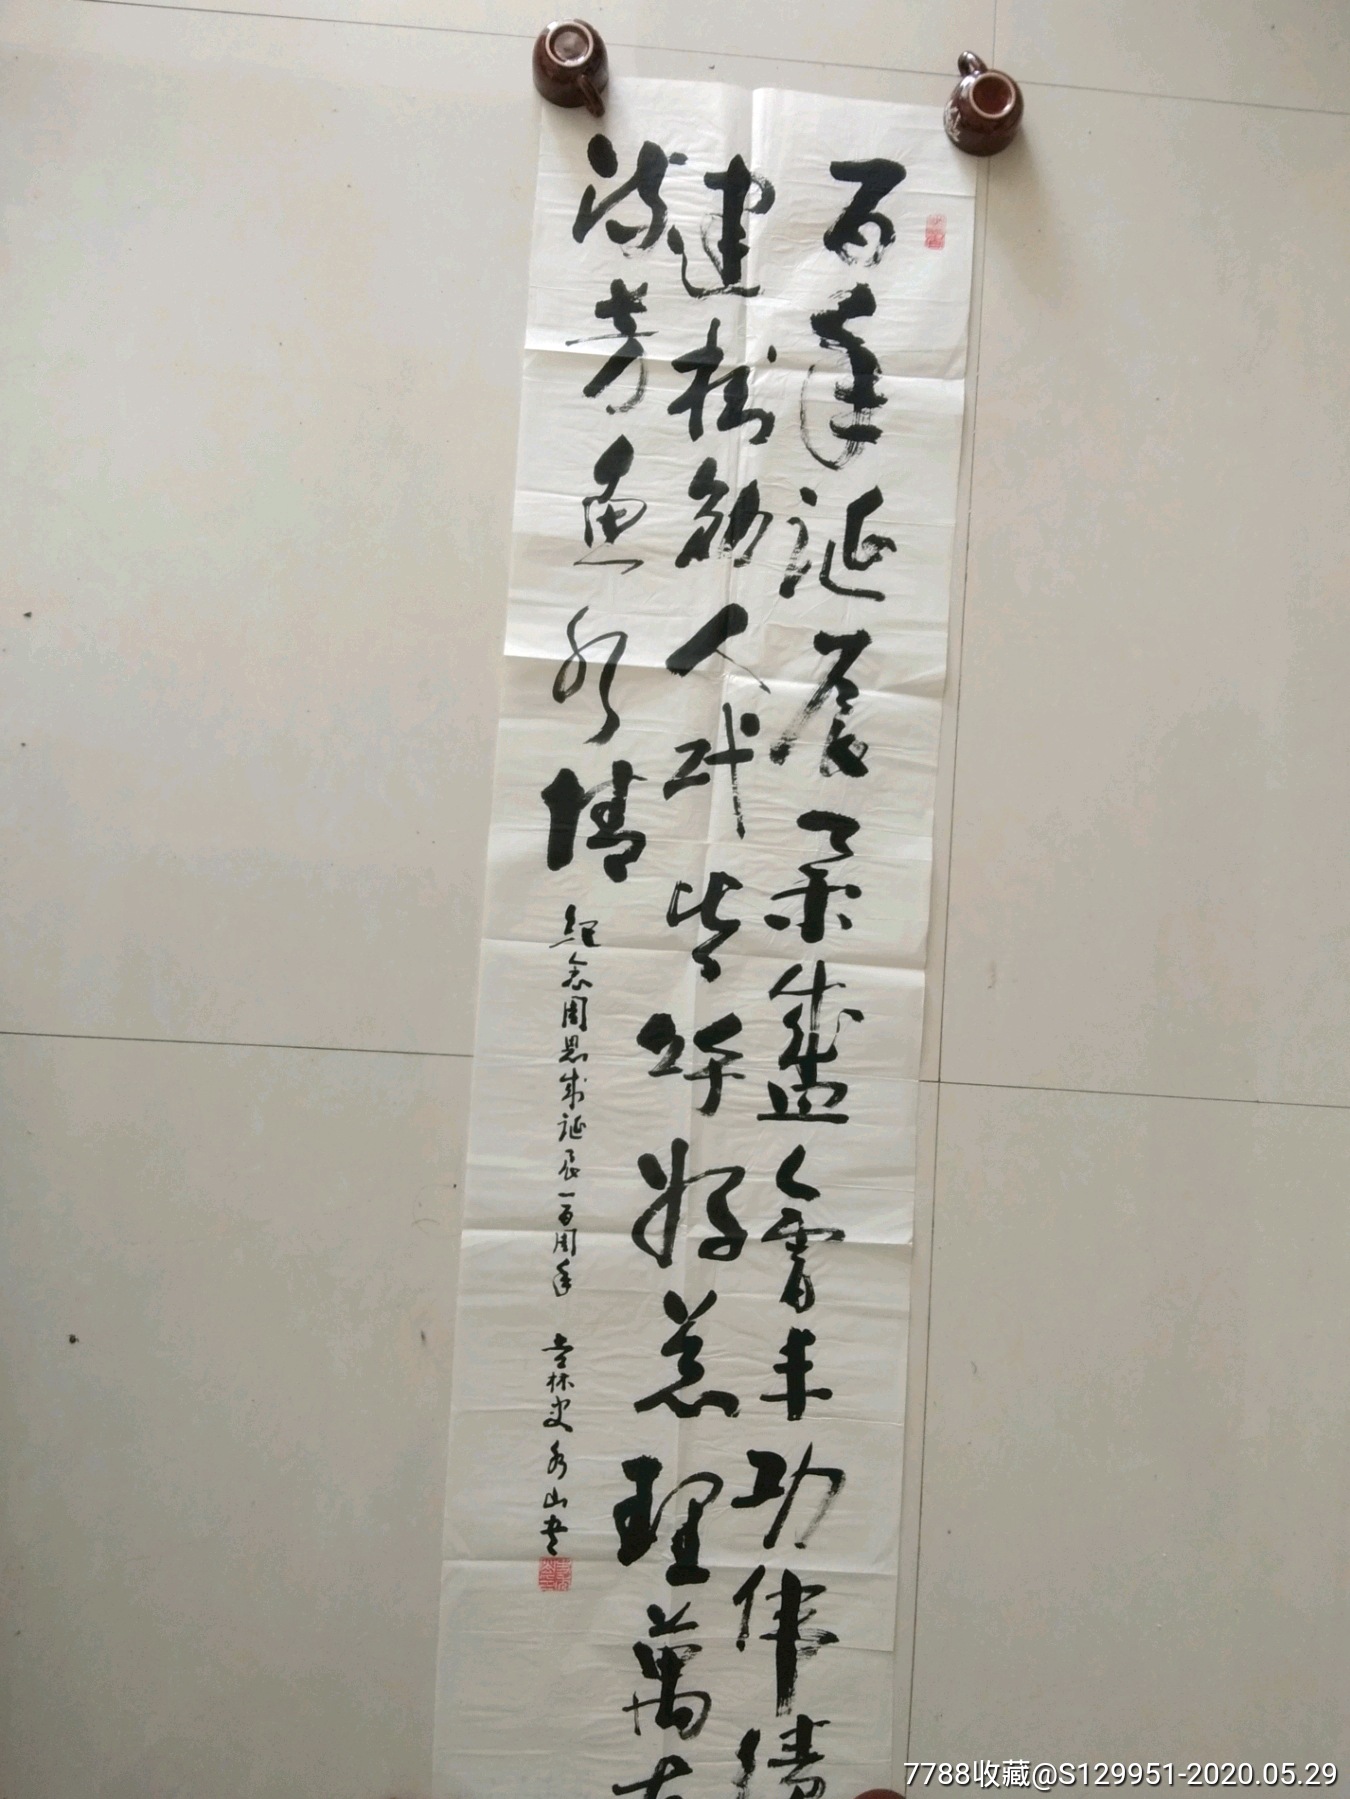 百年诞辰盛會丰功伟绩
建树勋人民皆呼好总理萬古
流芳鱼水情
纪念周恩来诞辰一百周年 吉林史秀山书
7788收藏@S129951-2020.05.29